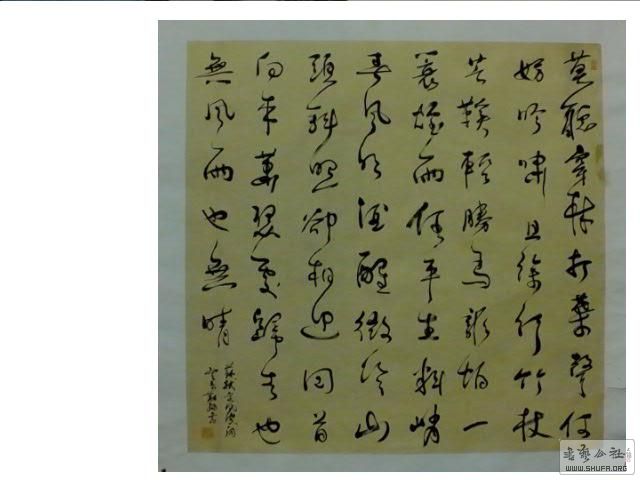 莫聽穿林打葉聲何
妨吟嘯且徐行竹杖
芒鞋輕勝馬誰怕一
蓑煙雨任平生料峭
春風吹酒醒微冷山
頭斜照卻相迎回首
向來蕭瑟處歸去也
無風雨也無晴
蘇軾定風波詞
書
书艺公社
WWW.SHUFA.ORG